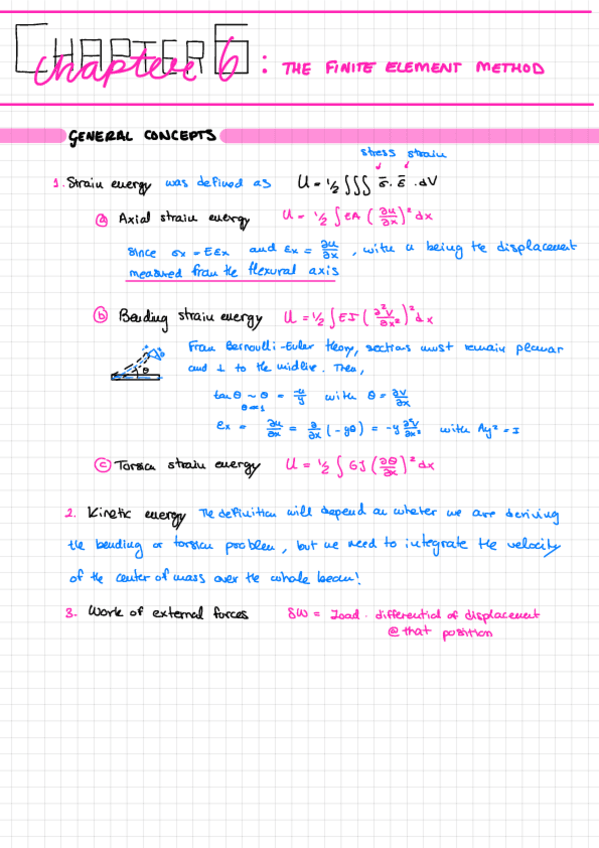 CHAPTER 6
Chapter 6: THE FINITE ELEMENT METHOD
GENERAL CONCEPTS
stress strain
1. Strain energy was defined as U = 1/2 ∫∫∫ σ̄ · ε̄ · dV
ⓐ Axial strain energy U = 1/2 ∫ EA (∂u/∂x)² dx
since σx = Eεx and εx = ∂u/∂x, with u being the displacement
measured from the flexural axis
ⓑ Bending strain energy U = 1/2 ∫ EI (∂²v/∂x²)² dx
From Bernoulli-Euler theory, sections must remain planar
and ⊥ to the midline. Then,
θ
tan θ ~ θ = -u/y with θ = ∂v/∂x
θ≪1
εx = ∂u/∂x = ∂/∂x (-yθ) = -y ∂²v/∂x² with Ay² = I
ⓒ Torsion strain energy U = 1/2 ∫ GJ (∂θ/∂x)² dx
2. Kinetic energy The definition will depend on wheter we are deriving
the bending or torsion problem, but we need to integrate the velocity
of the center of mass over the whole beam!
3. Work of external forces δW = Load · differential of displacement
@ that position